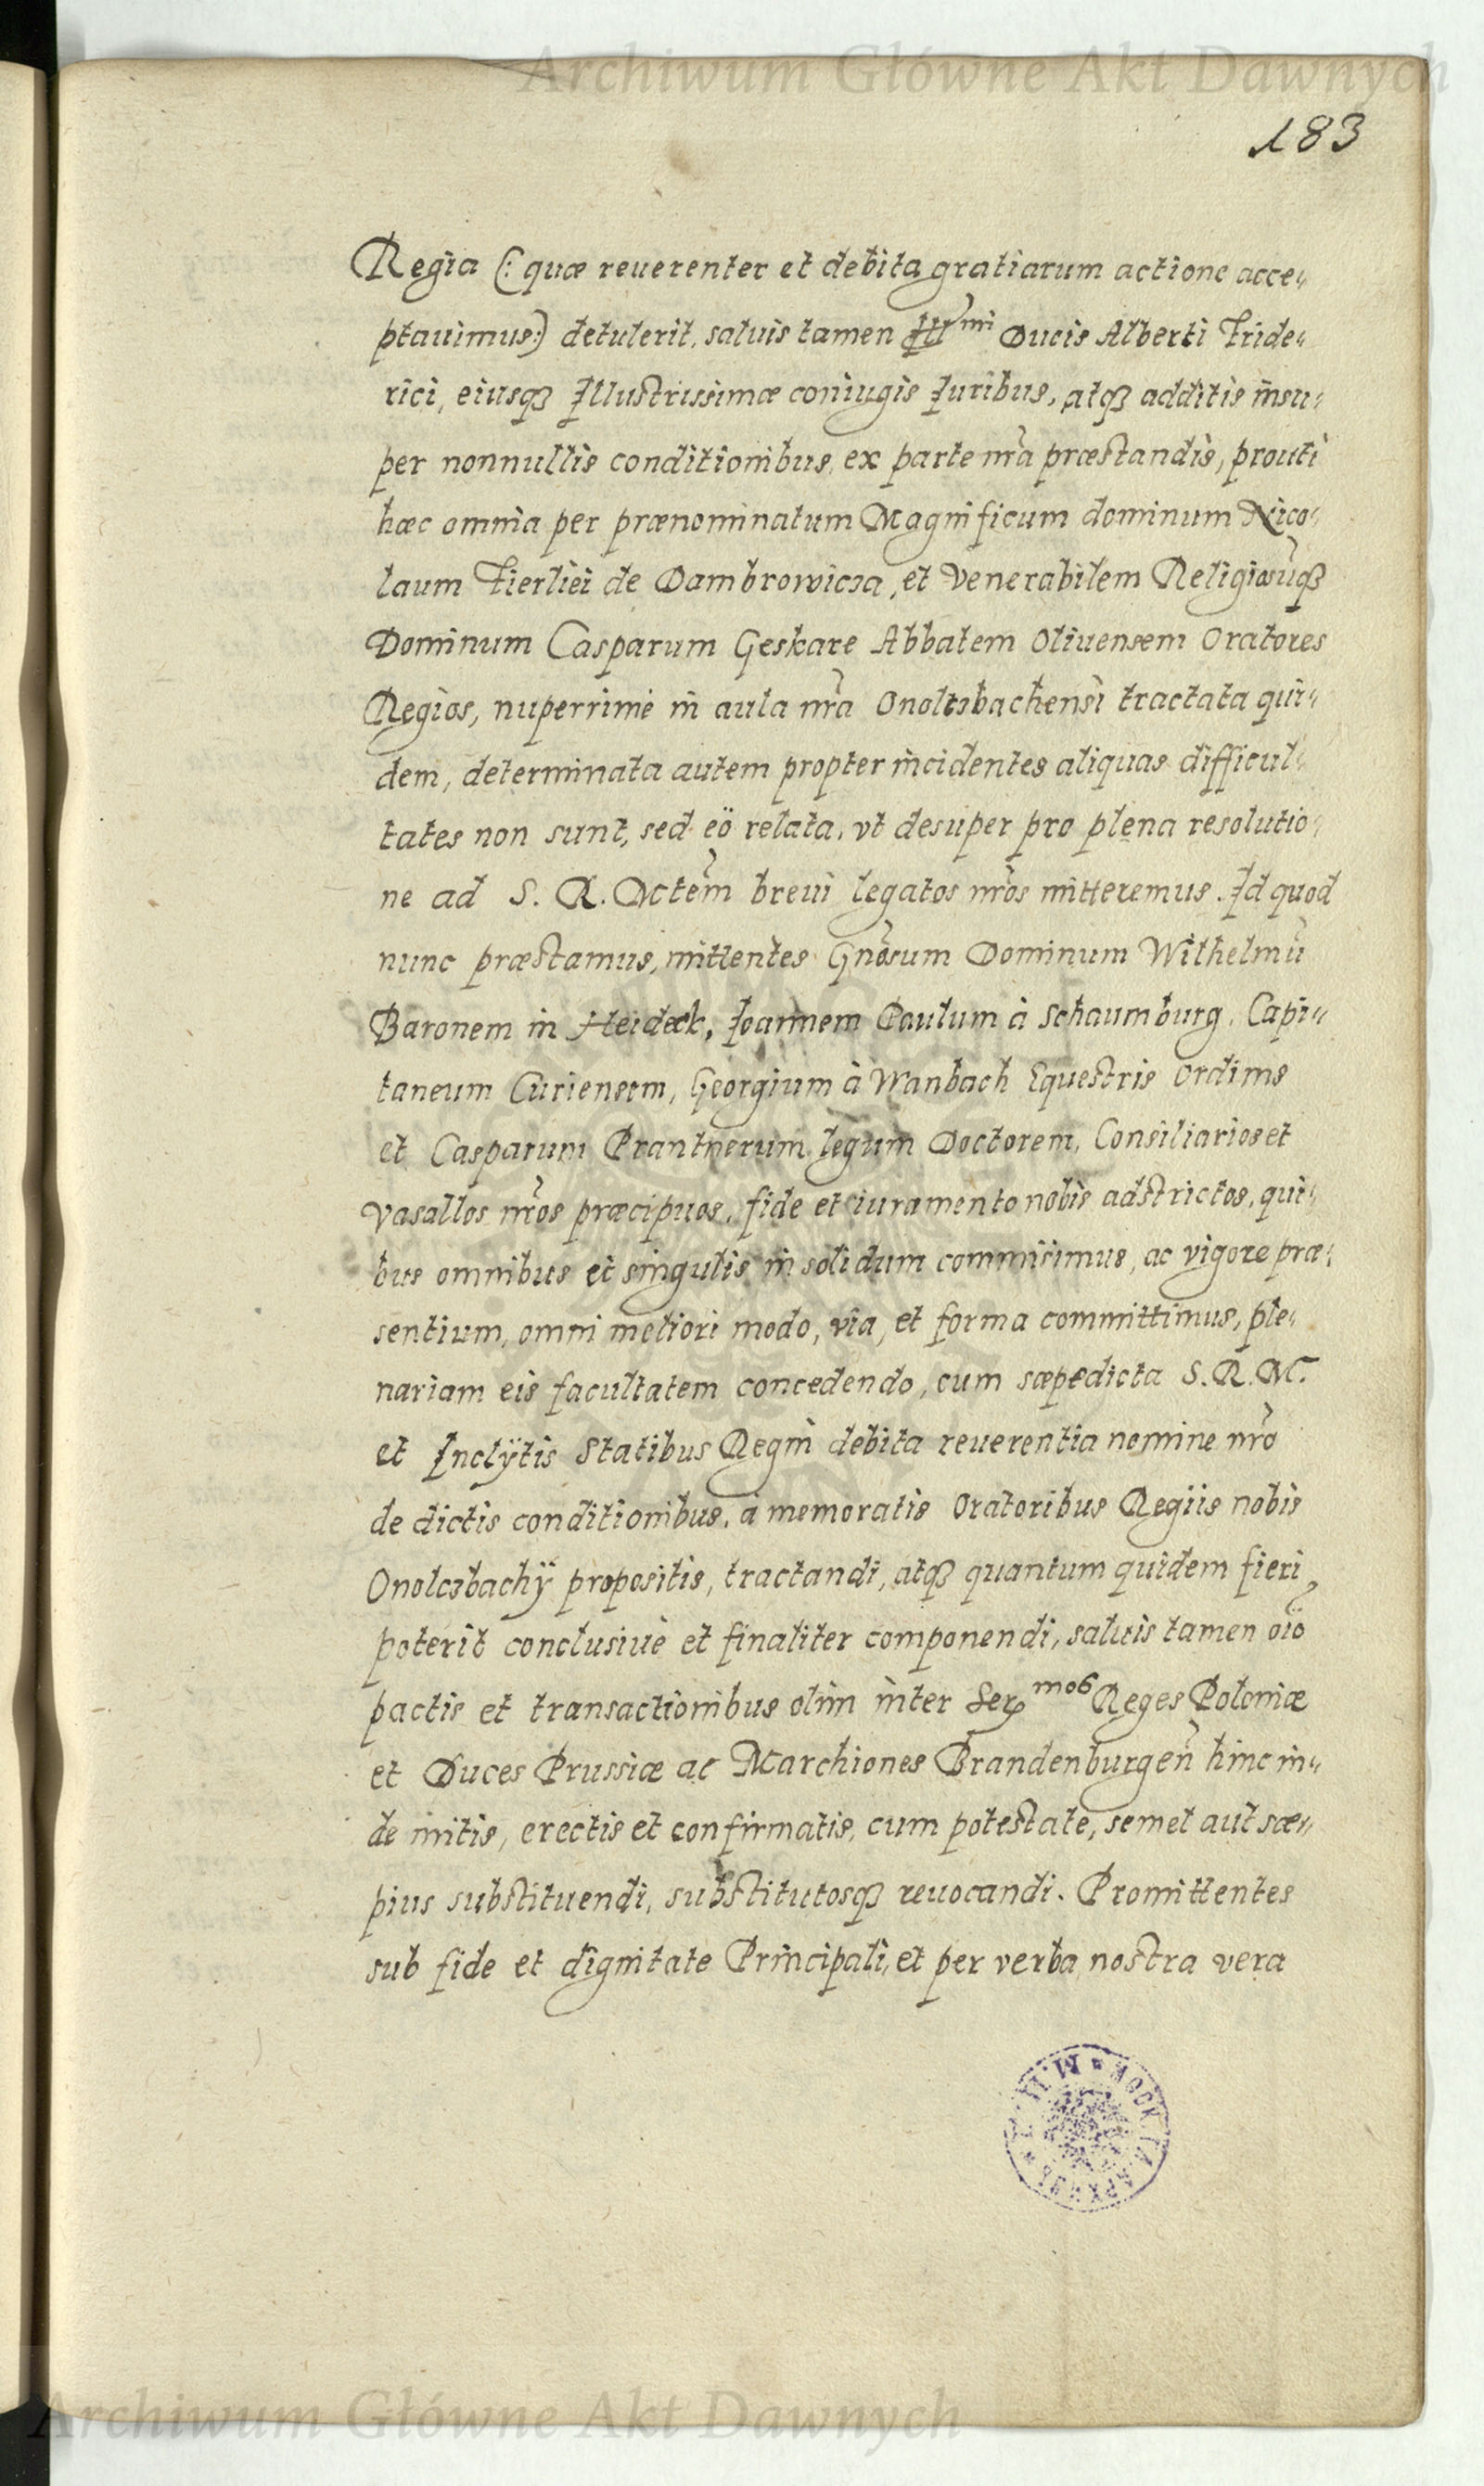 Archiwum Główne Akt Dawnych
183
Regia (: quæ reuerenter et debita gratiarum actione acce„
ptauimus:) detulerit, saluis tamen Ill^mi Ducis Alberti Fride„
rici, eiusq₃ Illustrissimæ coniugis Iuribus, atq₃ additis insu„
per nonnullis conditionibus, ex parte nr̃a præstandis, prouti
hæc omnia per prænominatum Magnificum dominum Nico„
laum Fierliei de Dambrowicza, et Venerabilem Religiosũq₃
Dominum Casparum Geskare Abbatem Oliuensem Oratores
Regios, nuperrimè in aula nr̃a Onoltzbachensi tractata qui„
dem, determinata autem propter incidentes aliquas difficul„
tates non sunt, sed eò relata, vt desuper pro plena resolutio„
ne ad S. R. Mctem̃ breui legatos nr̃os mitteremus. Id quod
nunc præstamus, mittentes Gnõsum Dominum Wilhelmũ
Baronem in Heideck, Ioannem Paulum à Schaumburg, Capi„
taneum Curiensem, Georgium à Wanbach Equestris Ordinis
et Casparum Prantnerum legum Doctorem, Consiliarios et
Vasallos nr̃os præcipuos, fide et iuramento nobis adstrictos, qui„
bus omnibus et singulis in solidum commisimus, ac vigore præ„
sentium, omni meliori modo, via, et forma committimus, ple„
nariam eis facultatem concedendo, cum sæpedicta S. R. M.
et Inclÿtis Statibus Regni debita reuerentia nomine nr̃o
de dictis conditionibus, à memoratis Oratoribus Regiis nobis
Onolczbachÿ propositis, tractandi, atq₃ quantum quidem fieri
poterit conclusiuè et finaliter componendi, saluis tamen oĩo
pactis et transactionibus olim inter Ser^mos Reges Poloniæ
et Duces Prussiæ ac Marchiones Brandenburgeñ hinc in„
de initis, erectis et confirmatis, cum potestate, semel aut sæ„
pius substituendi, substitutosq₃ reuocandi. Promittentes
sub fide et dignitate Principali, et per verba nostra vera
Archiwum Główne Akt Dawnych